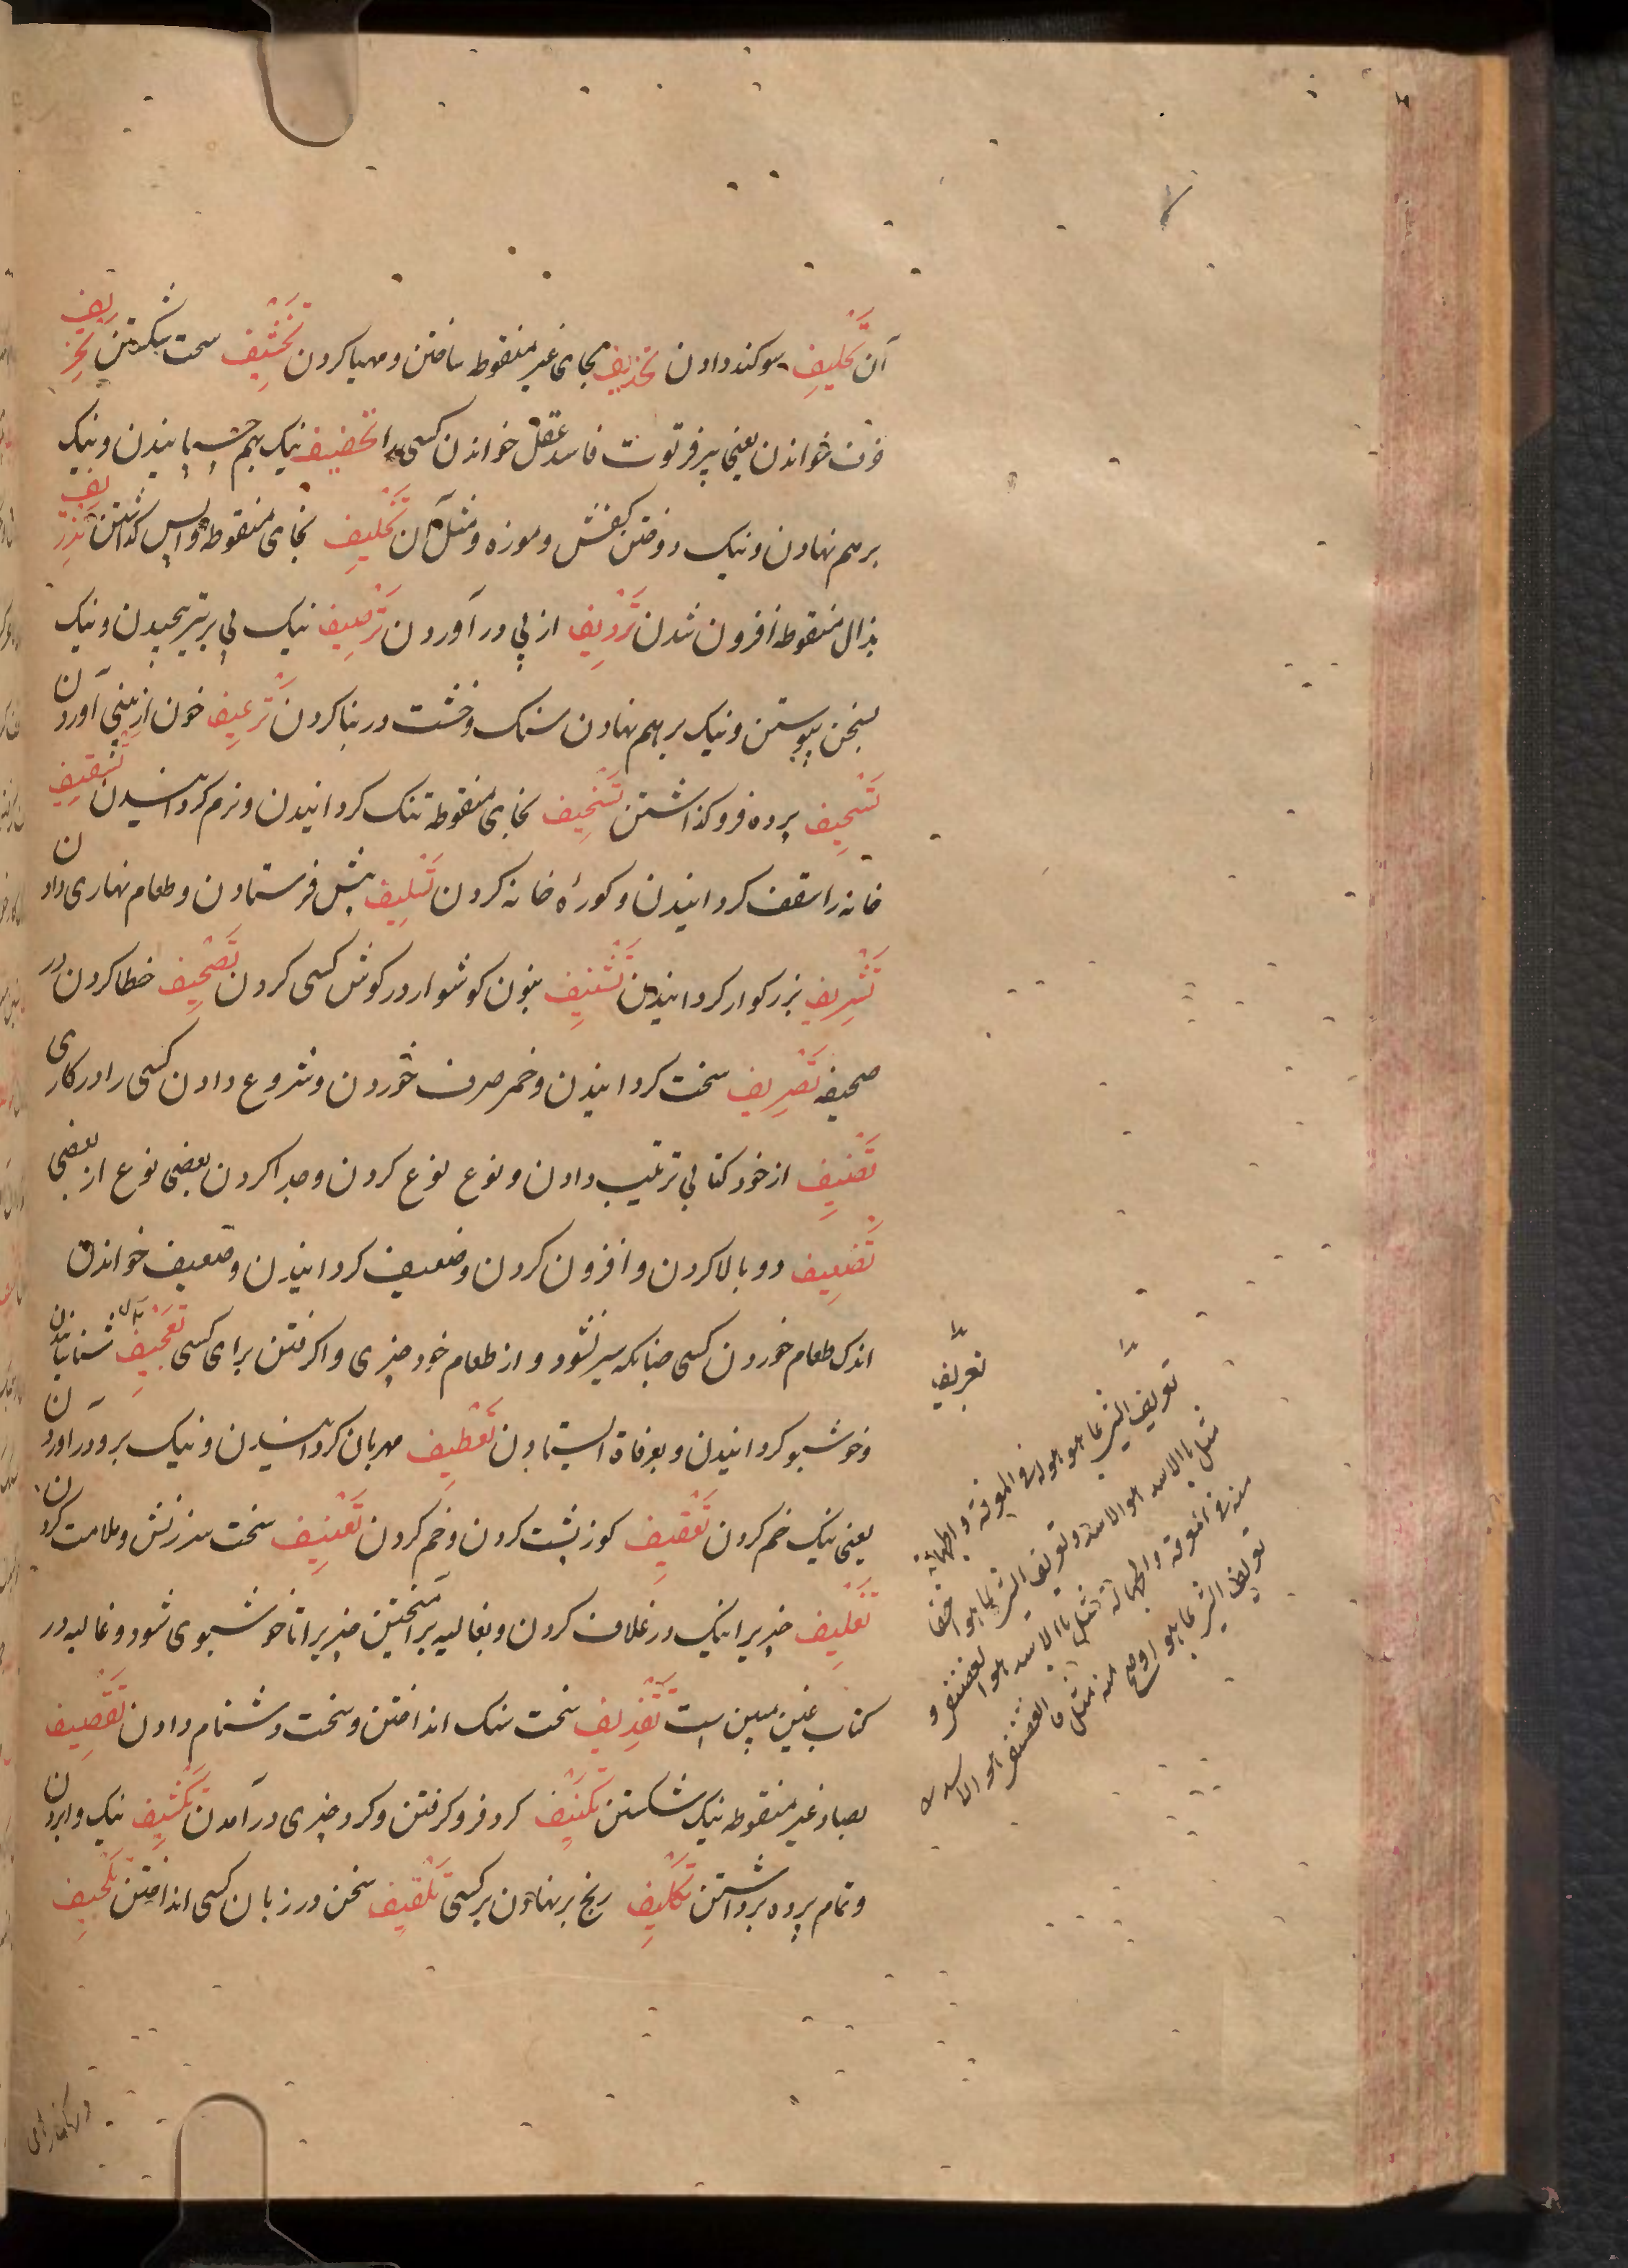 آن تَحْلِیف سوکند دادن تحذیف بحای غیر منقوطه ساختن و مهیا کردن تَخْشِیف سخت شکستن تخریف
خرف خواندن یعنی پیر فرتوت فاسد عقل خواندن کسی را تخصیف نیک بهم چسپانیدن و نیک
برهم نهادن و نیک دوختن کفش و موزه و مثل آن تَخْلِیف بخای منقوطه واپس کذاشتن تَذْرِیف
بذال منقوطه افزون شدن تَرْدِیف از پی درآوردن تَرْصِیف نیک پی بر تیر پیچیدن و نیک
سخن پیوستن و نیک برهم نهادن سنک و خشت در بنا کردن تَرْعِیف خون از بینی آوردن
تَسْجِیف پرده فرو کذاشتن تَسْخِیف بخای منقوطه تنک کردانیدن و نرم کردانیدن تَسْقِیف
خانه را سقف کردانیدن و کوزهٔ خانه کردن تَسْلِیف پیش فرستادن و طعام نهاری دادن
تَشْرِیف بزرکوار کردانیدن تَشْنِیف بنون کوشوار در کوش کسی کردن تَصْحِیف خطا کردن در
صحیفه تَصْرِیف سخت کردانیدن و خمر صرف خوردن و شروع دادن کسی را در کاری
تَصْنِیف از خود کتابی ترتیب دادن و نوع نوع کردن و جدا کردن بعضی نوع از بعضی
تَضْعِیف دو بالا کردن و افزون کردن و ضعیف کردانیدن و ضعیف خواندن
اندک طعام خوردن کسی چنانکه سیر نشود و از طعام خود چیزی واکرفتن برای کسی تَعْرِیف شناسانیدن
و خوشبو کردانیدن و بعرفات ایستادن تَعْطِیف مهربان کردانیدن و نیک برو درآوردن
یعنی نیک خم کردن تَعْقِیف کوز پشت کردن و خم کردن تَعْنِیف سخت سرزنش و ملامت کردن
تَغْلِیف چیزیرا نیک در غلاف کردن و بغالیه برآمیختن چیزیرا تا خوشبوی شود و غالیه در
کتاب غین مبین است تَقْذِیف سخت سنک انداختن و سخت دشنام دادن تَقْصِیف
بصاد غیر منقوطه نیک شکستن تَکْنِیف کرد فرو کرفتن و کرد چیزی درآمدن تَکْشِیف نیک وابردن
و تمام پرده برداشتن تَکْلِیف رنج برنهادن بر کسی تَلْقِیف سخن در زبان کسی انداختن تَلْحِیف
تعریف
تعریف الشی بما هو هو فی المعرفة والجهالة
مثل بالاسد هو الاسد و تعریف الشی بما هو اخفا
منه فی المعرفة والجهالة مثل بالاسد هو الغضنفر و
تعریف الشی بما هو اوضح منه مثل ما الغضنفر هو الاسد